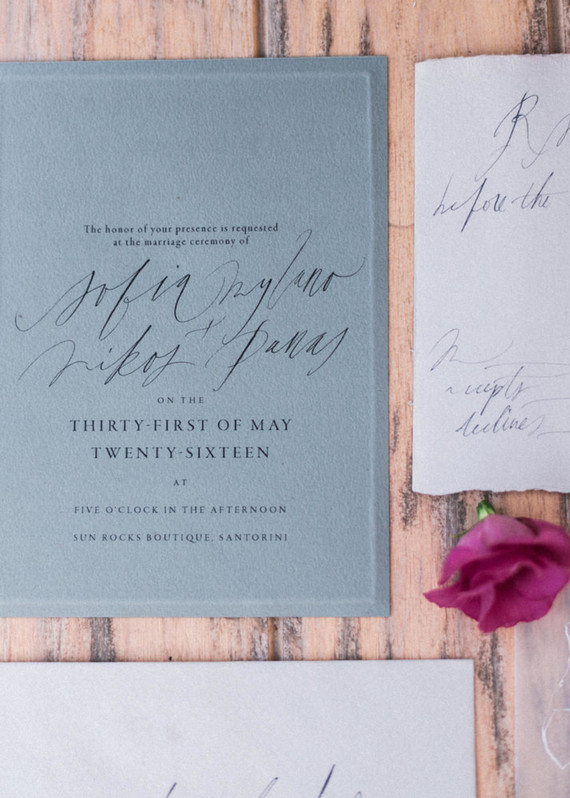 The honor of your presence is requested
at the marriage ceremony of
Sofia Mylano
+
Nikos Panas
ON THE
THIRTY-FIRST OF MAY
TWENTY-SIXTEEN
AT
FIVE O'CLOCK IN THE AFTERNOON
SUN ROCKS BOUTIQUE, SANTORINI
R
before the
M
accepts
declines